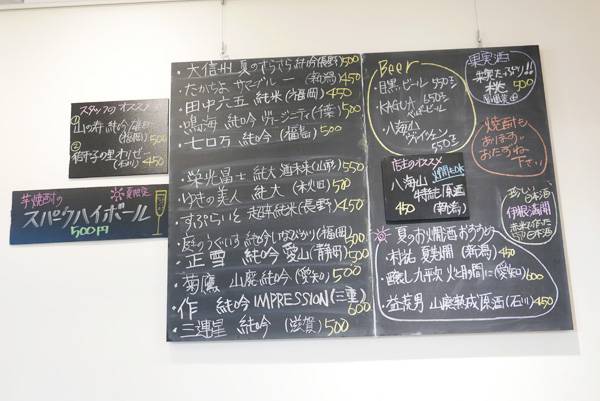 スタッフのオススメ
①
山の寿 純吟 雄町
(福岡) 500
②
(石川) 450
芋焼酎の 夏限定
スパークハイボール
500円
・大信州 夏のさらさら 純吟(長野) 500
・たかちよ サマーブルー (新潟) 450
・田中六五 純米(福岡) 450
・鳴海 純吟 (千葉) 500
・七ロ万 純吟 (福島) 500
・栄光冨士 純大 酒未来(山形) 550
・ゆきの美人 純大 (秋田) 500
・すぷらいと 超辛純米(長野) 450
・庭のうぐいす 純吟 いなびかり(福岡) 500
・正雪 純吟 愛山(静岡) 500
・菊鷹 山廃 純吟(愛知) 500
・作 純吟 IMPRESSION(三重) 600
・三連星 純吟 (滋賀) 500
Beer
・目黒ビール 550
・八海山
ヴァイツェン
550
店主のオススメ
八海山
特純 原酒
450 (新潟)
果実酒
果実たっぷり!!
桃 500
焼酎も
あります
おたずね
下さい
日本酒
伊根満開
日本酒
夏のお燗酒おろうど
・村祐 夏 (新潟) 450
・醸し九平次 火と月の間に(愛知) 600
・益荒男 山廃 熟成 原酒(石川) 450